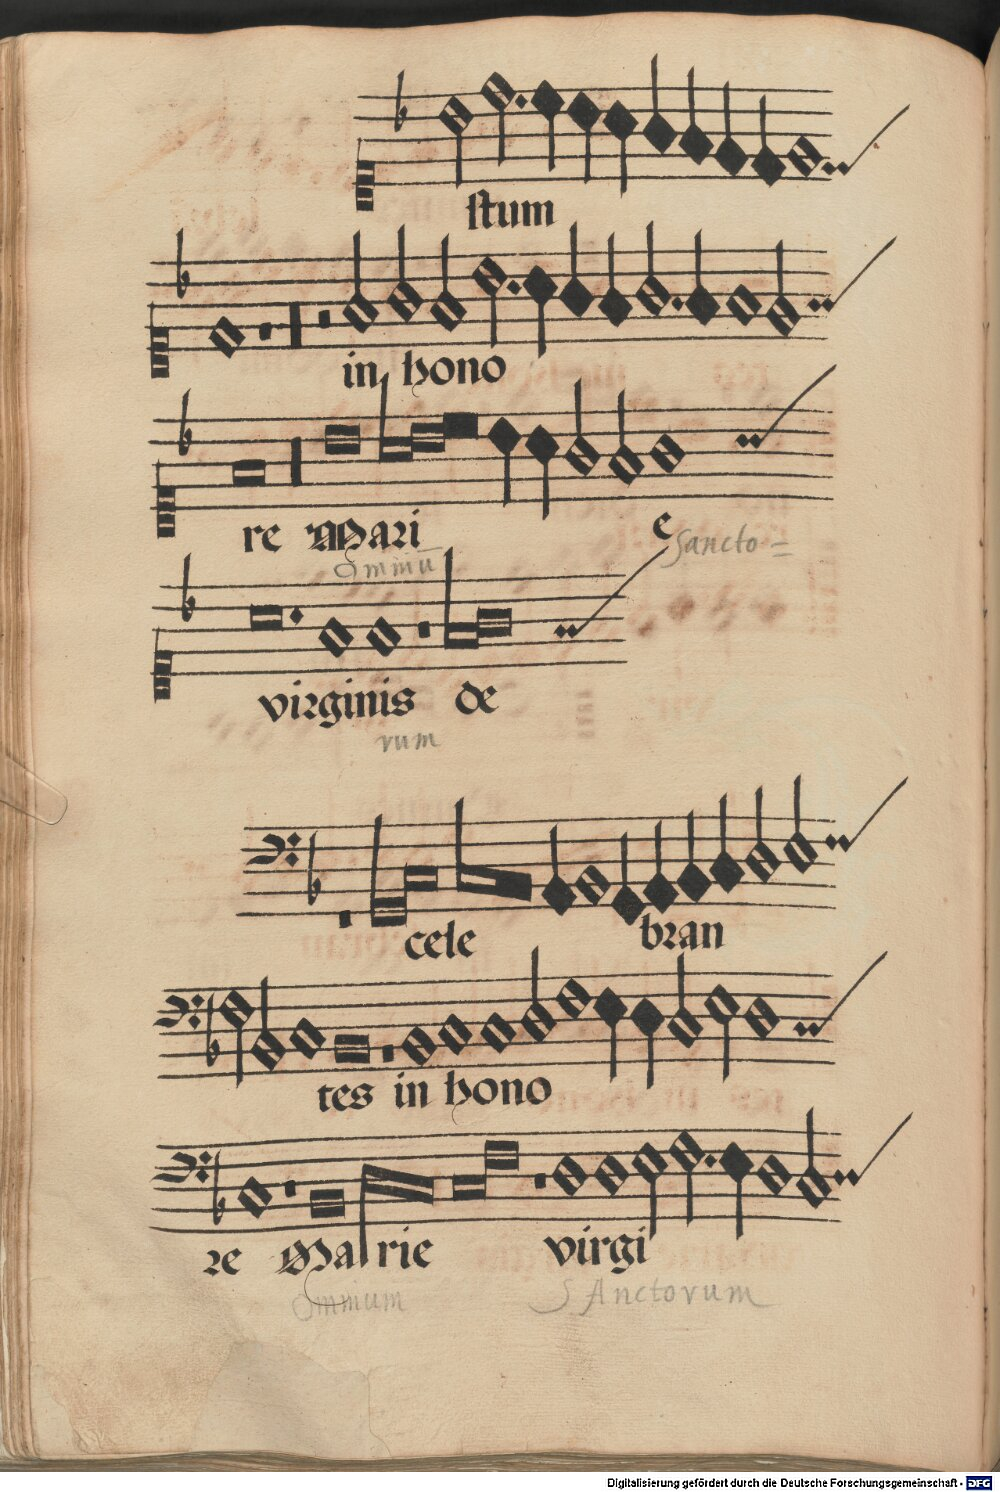 ſtum
in hono
re Mari e
Sancto =
Omniū
virginis de
rum
cele bran
tes in hono
re Marie virgi
Omnium SAnctorum
Digitalisierung gefördert durch die Deutsche Forschungsgemeinschaft - DFG